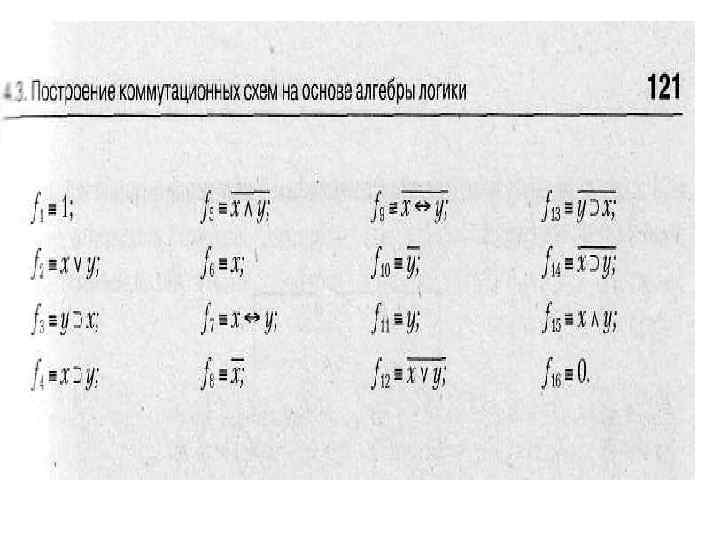 4.3. Построение коммутационных схем на основе алгебры логики 121
f₁ ≡ 1; f₅ ≡ \overline{x ∧ y}; f₉ ≢ \overline{x ⇔ y}; f₁₃ ≡ \overline{y ⊃ x};
f₂ ≡ x ∨ y; f₆ ≡ x; f₁₀ ≡ \overline{y}; f₁₄ ≡ \overline{x ⊃ y};
f₃ ≡ y ⊃ x; f₇ ≡ x ⇔ y; f₁₁ ≡ y; f₁₅ ≡ x ∧ y;
f₄ ≡ x ⊃ y; f₈ ≡ \overline{x}; f₁₂ ≡ \overline{x ∨ y}; f₁₆ ≡ 0.